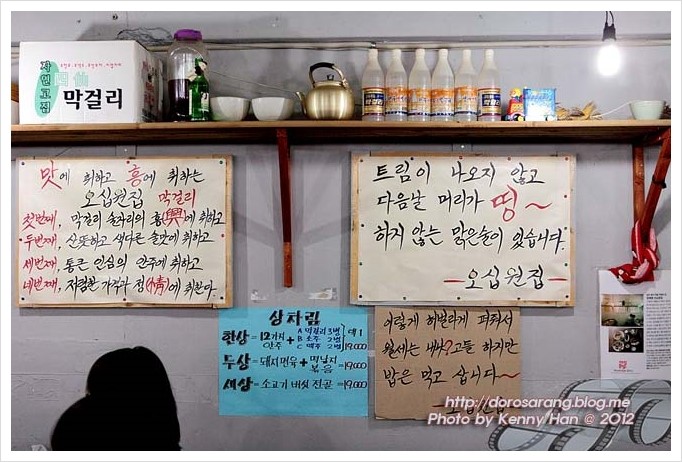 자연고집
막걸리
맛에 취하고 흥에 취하는
오십원집 막걸리
첫번째, 막걸리 술자리의 흥(興)에 취하고
두번째, 산뜻하고 색다른 술맛에 취하고
세번째, 통큰 인심의 안주에 취하고
네번째, 저렴한 가격과 정(情)에 취한다.
트림이 나오지 않고
다음날 머리가 띵~
하지 않는 맑은술이 있습니다.
ㅡ오십원집ㅡ
상차림
한상 = 12가지 안주 + A 막걸리 3병 B 소주 2병 C 맥주 2병 택1 19,000
두상 = 돼지편육 + 미닐라 볶음 = 19,000
세상 = 소고기 버섯 전골 = 19,000
이렇게 헤벌라게 퍼줘서
월세는 내싸?고들 하지만
밥은 먹고 삽니다~
ㅡ오십원집
http://dorosarang.blog.me
Photo by Kenny Han @ 2012